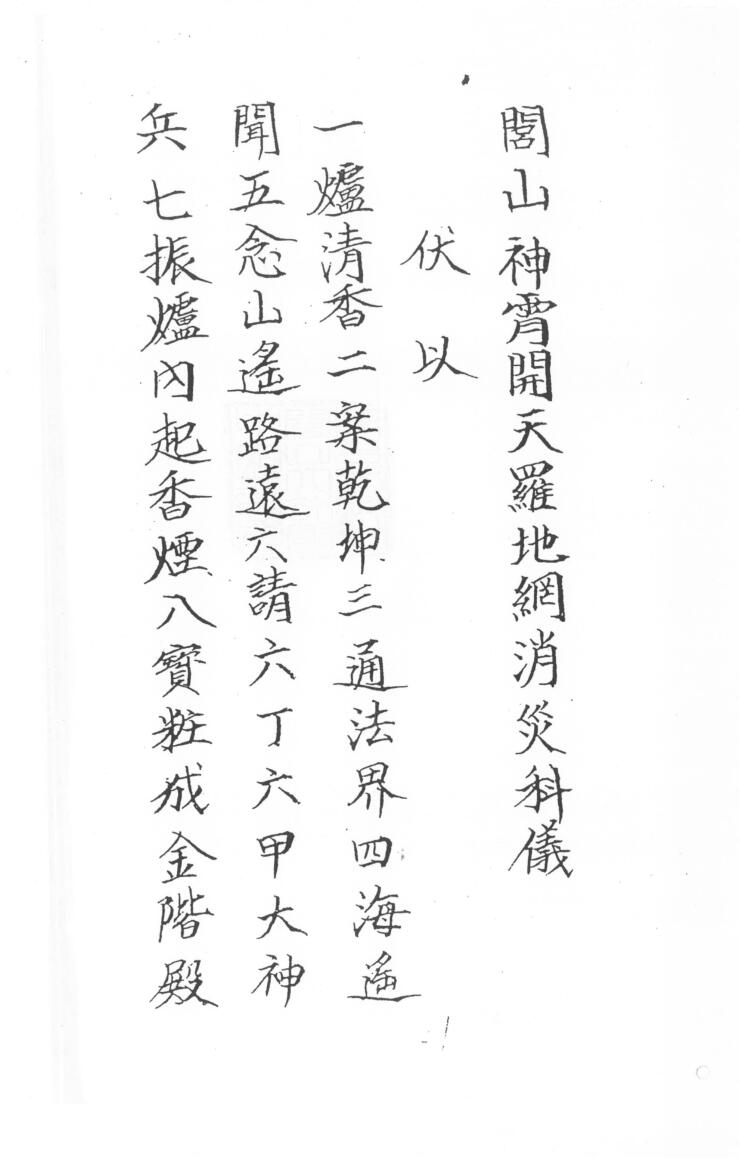 閭山神霄開天羅地網消災科儀
伏以
一爐清香二案乾坤三通法界四海遥
聞五念山遙路遠六請六丁六甲大神
兵七振爐內起香煙八寶粧成金階殿